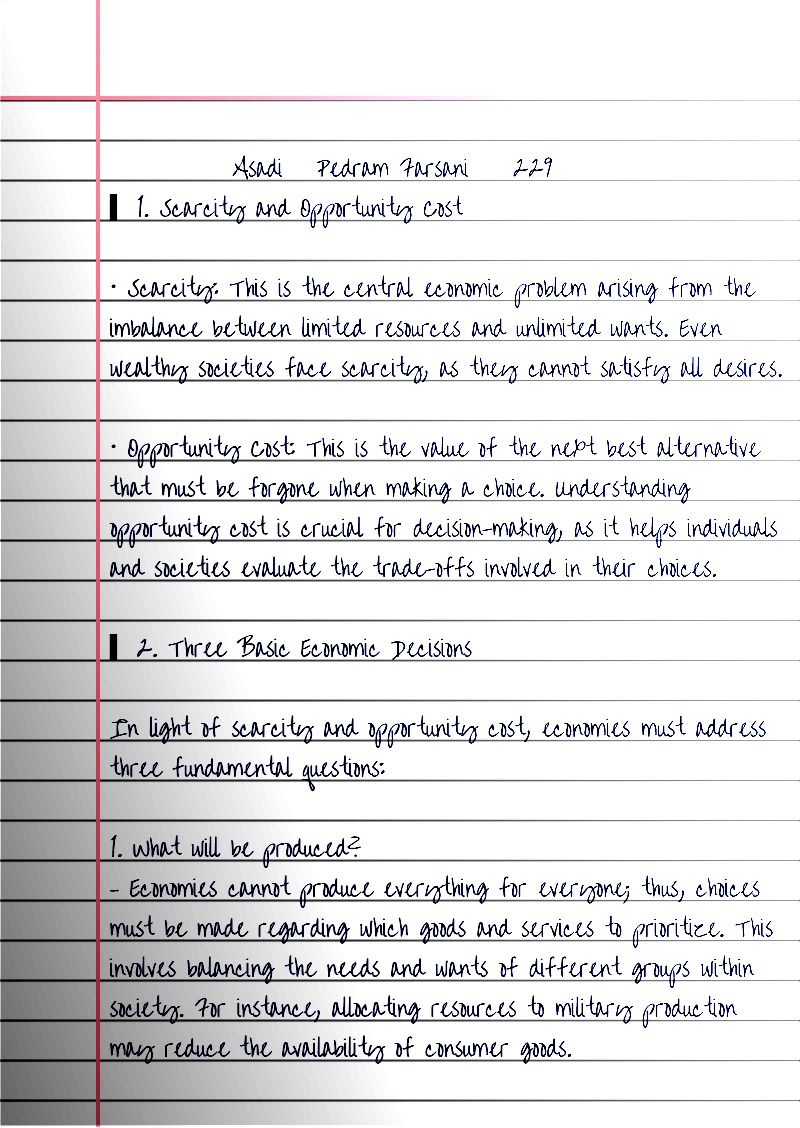 Asadi Pedram Farsani 229
1. Scarcity and Opportunity Cost
· Scarcity: This is the central economic problem arising from the
imbalance between limited resources and unlimited wants. Even
wealthy societies face scarcity, as they cannot satisfy all desires.
· Opportunity Cost: This is the value of the next best alternative
that must be forgone when making a choice. Understanding
opportunity cost is crucial for decision-making, as it helps individuals
and societies evaluate the trade-offs involved in their choices.
2. Three Basic Economic Decisions
In light of scarcity and opportunity cost, economies must address
three fundamental questions:
1. What will be produced?
- Economies cannot produce everything for everyone; thus, choices
must be made regarding which goods and services to prioritize. This
involves balancing the needs and wants of different groups within
society. For instance, allocating resources to military production
may reduce the availability of consumer goods.